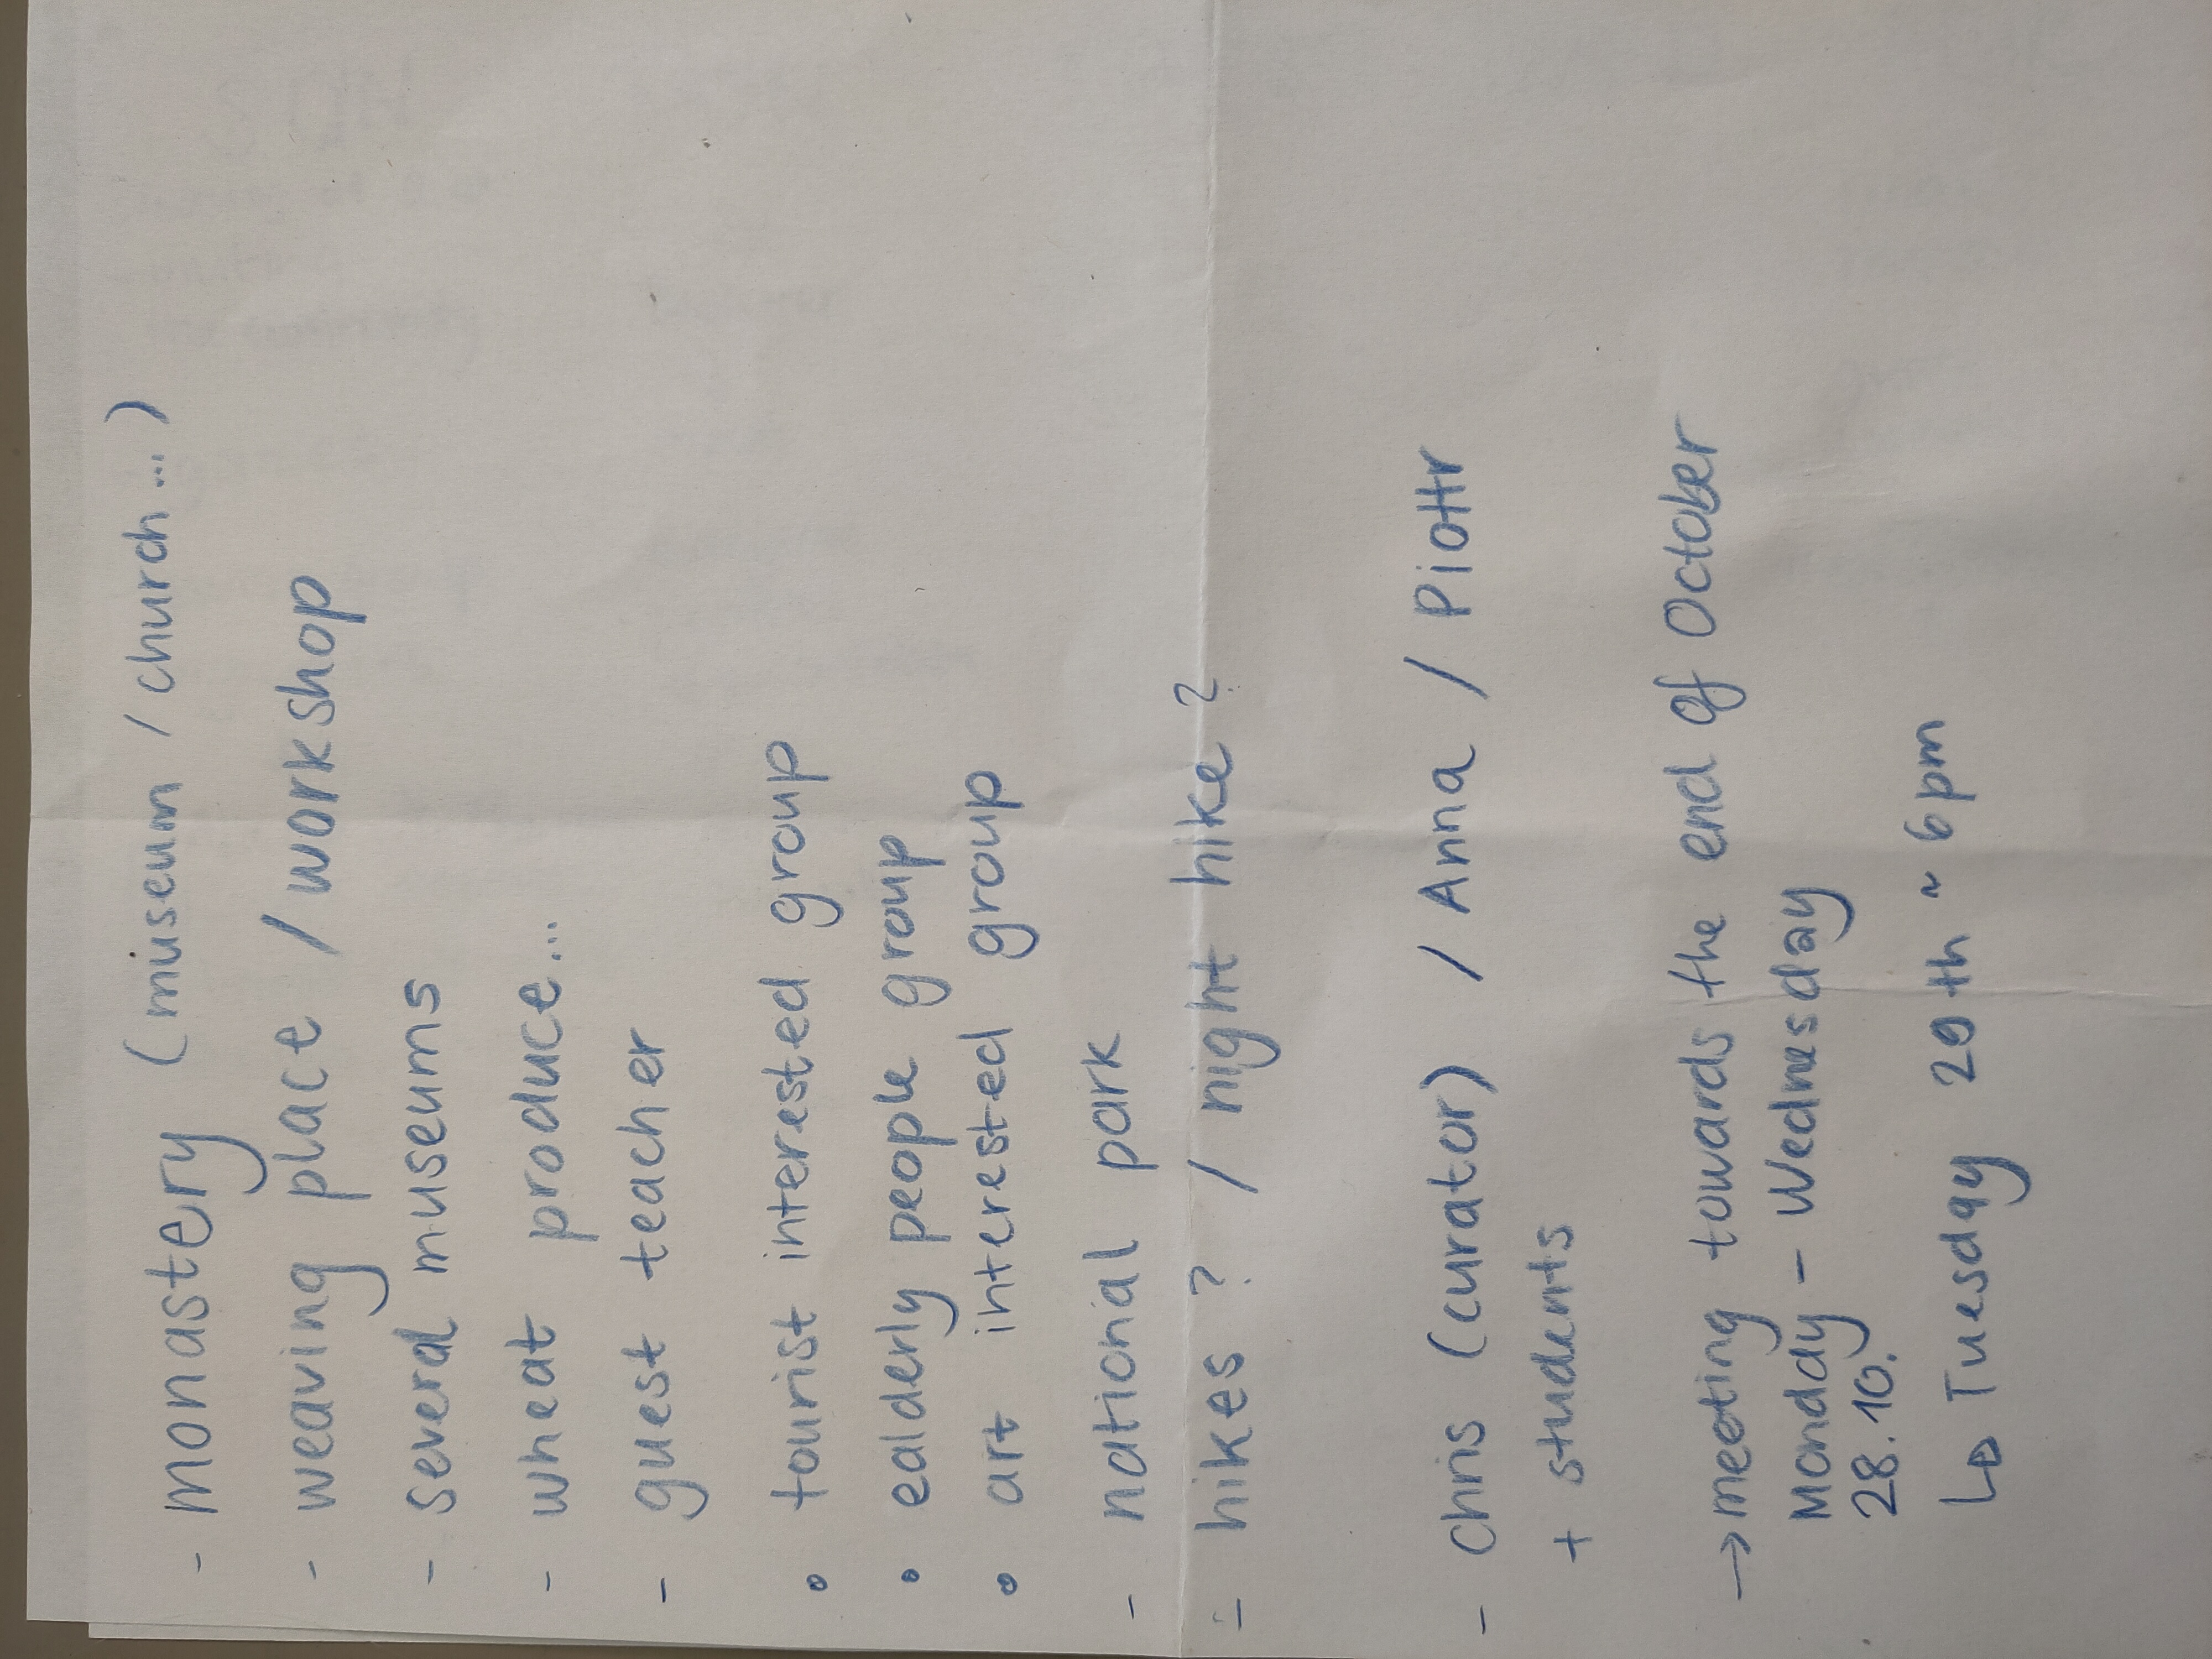 - monastery (museum / church...)
- weaving place / workshop
- several museums
- wheat produce...
- guest teacher
• tourist interested group
• ealderly people group
• art interested group
- national park
- hikes ? / night hike ?
- Chris (curator) / Anna / Piottr
+ students
→ meeting towards the end of October
Monday - Wednesday
28.10.
↳ Tuesday 29th ~ 6pm